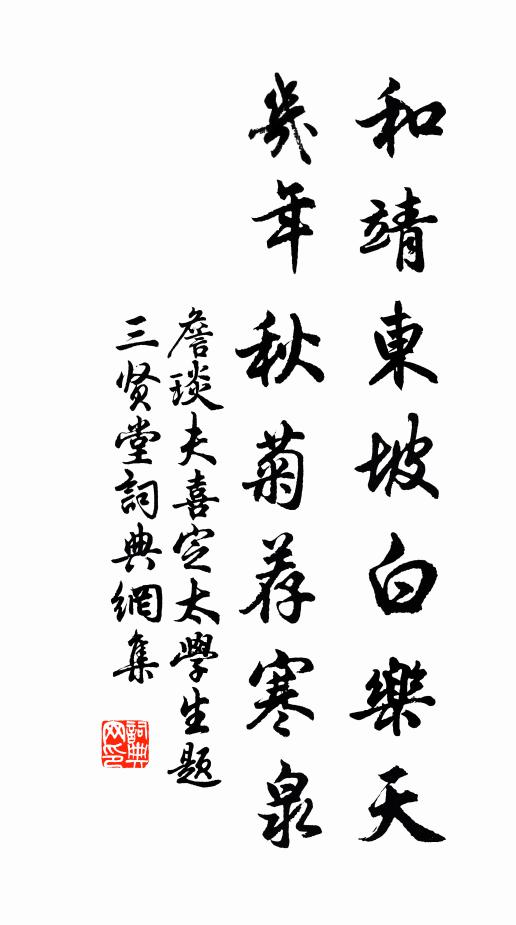 和靖東坡白樂天
幾年秋菊荐寒泉
詹琰夫喜定太學生題
三贤堂詞典網集
詞典网印